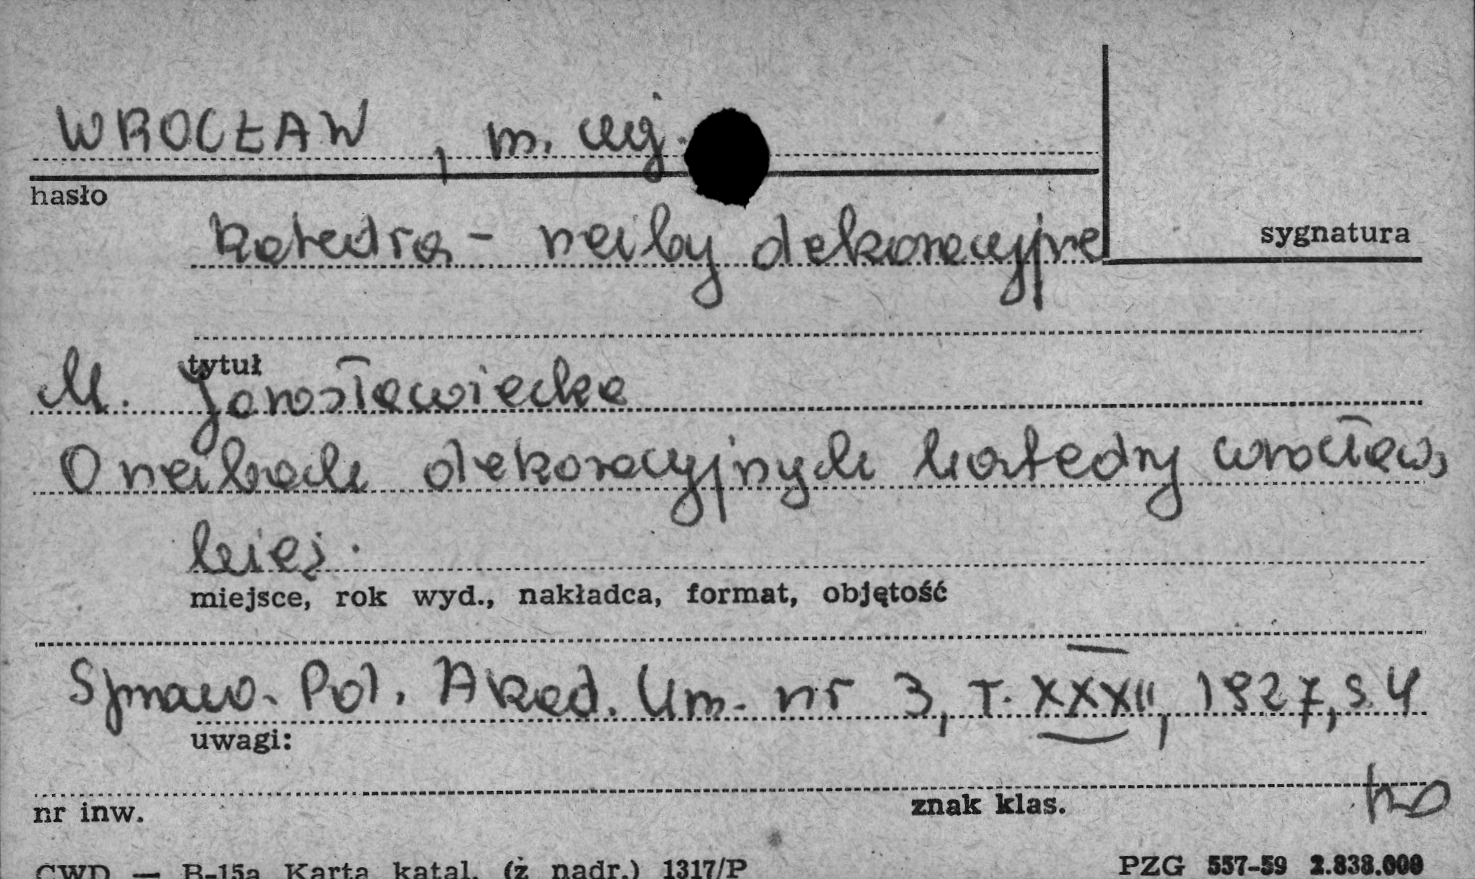 WROCŁAW, m. woj.
hasło
sygnatura
katedra - rzeźby dekoracyjne
tytuł
M. Jarosławiecka
O rzeźbach dekoracyjnych katedry wrocławs
kiej.
miejsce, rok wyd., nakładca, format, objętość
Spraw. Pol. Akad. Um. nr 3, T. XXXII, 1927, s. 4
uwagi:
nr inw.
znak klas.
CWD — B-15a Karta katal. (ż nadr.) 1317/P
PZG 557-59 2.838.000